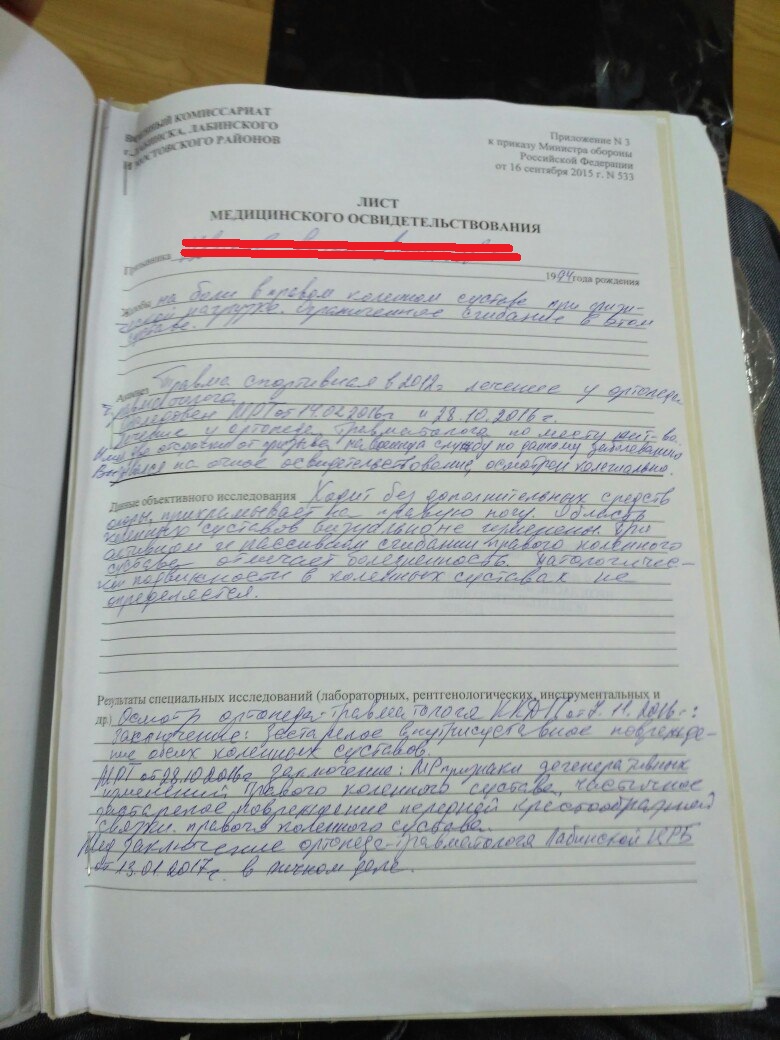 ВОЕННЫЙ КОМИССАРИАТ
г. ЛАБИНСКА, ЛАБИНСКОГО
И МОСТОВСКОГО РАЙОНОВ
Приложение N 3
к приказу Министра обороны
Российской Федерации
от 16 сентября 2015 г. N 533
ЛИСТ
МЕДИЦИНСКОГО ОСВИДЕТЕЛЬСТВОВАНИЯ
Призывника
1994 года рождения
Жалобы на боли в правом коленном суставе при физи-
ческой нагрузке. Ограниченное сгибание в этом
суставе.
Анамнез Травма спортивная в 2012г лечение у ортопеда
травматолога
МРТ от 19.02.2016г и 28.10.2016 г.
Лечение у ортопеда травматолога по месту жит-ва.
отсрочки от призыва на военную службу по данному заболеванию
на очное освидетельствование, осмотрен коллегиально.
Данные объективного исследования Ходит без дополнительных средств
опоры, прихрамывает на правую ногу. Область
коленных суставов визуально не изменены. При
активном и пассивном сгибании правого коленного
сустава отмечает болезненность. Патологичес-
кой подвижности в коленных суставах не
определяется.
Результаты специальных исследований (лабораторных, рентгенологических, инструментальных и
др.) Осмотр ортопеда-травматолога от 11. 2016 г:
Заключение: Застарелое внутрисуставное поврежде-
ние обеих коленных суставов.
МРТ от 28.10.2016г Заключение: МР признаки дегенеративных
изменений правого коленного сустава, частичное
застарелое повреждение передней крестообразной
связки правого коленного сустава.
Мед заключение ортопеда-травматолога Лабинской ЦРБ
от 13.01.2017г. в личном деле.